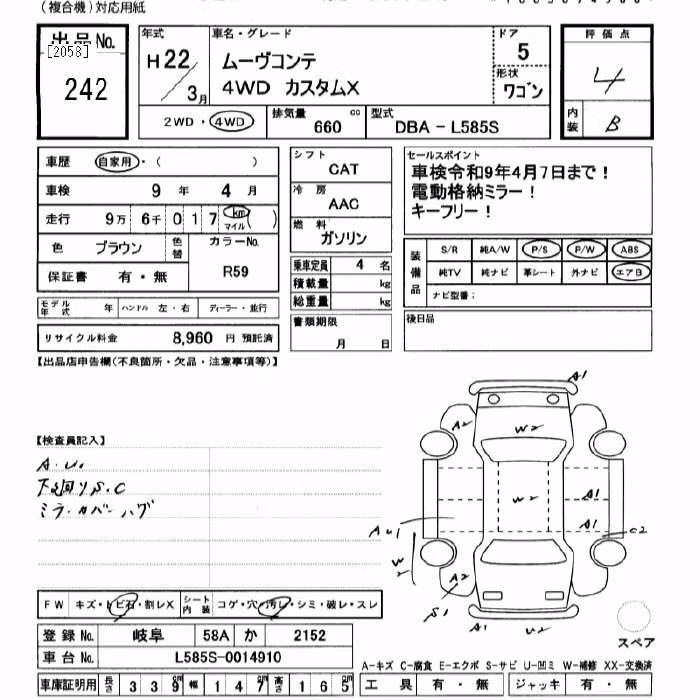 （複合機）対応用紙
出品No.
[2058]
242
年式
H22/3月
車名・グレード
ムーヴコンテ
4WD カスタムX
ドア
5
形状
ワゴン
評価点
4
内装
B
2WD・4WD
排気量
660 cc
型式
DBA - L585S
車歴 自家用・( )
車検 9年 4月
走行 9万 6千 0 1 7 km マイル ( )
色 ブラウン 色替
カラーNo.
R59
保証書 有・無
モデル年式 年 ハンドル 左・右 ディーラー・並行
リサイクル料金 8,960 円 預託済
シフト
CAT
冷房
AAC
燃料
ガソリン
乗車定員 4 名
積載量 kg
総重量 kg
書類期限
月 日
セールスポイント
車検令和9年4月7日まで！
電動格納ミラー！
キーフリー！
装備品
S/R 純A/W P/S P/W ABS
純TV 純ナビ 革シート 外ナビ エアB
ナビ型番：
後日品
【出品店申告欄(不良箇所・欠品・注意事項等)】
【検査員記入】
A・U.
下廻りS.C
ミラーカバーハグ
A1
A2
W2
W2
A1
A1
AU1
C2
W2
A2
S1
A1
U2
スペア
FW キズ・トビ石・割レX
シート内装 コゲ・穴・汚レ・シミ・破レ・スレ
登録No. 岐阜 58A か 2152
車台No. L585S-0014910
車庫証明用 長さ 3 3 9 cm 幅 1 4 7 cm 高さ 1 6 5 cm
A-キズ C-腐食 E-エクボ S-サビ U-凹ミ W-補修 XX-交換済
工具 有・無 ジャッキ 有・無